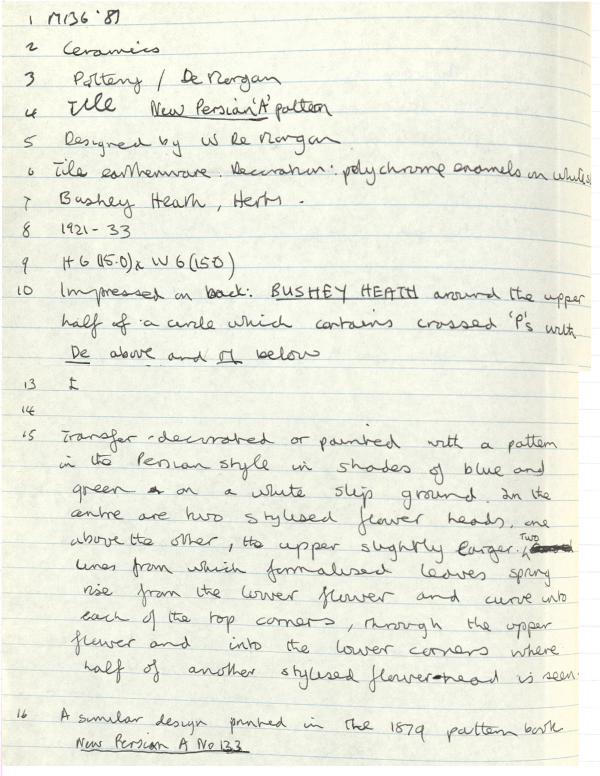 1 M136 '81
2 Ceramics
3 Pottery / De Morgan
4 Tile New Persian 'A' pattern
5 Designed by W De Morgan
6 Tile earthenware. Decoration: polychrome enamels on
7 Bushey Heath, Herts.
8 1921-33
9 H 6 (15.0) x W 6 (15.0)
10 Impressed on back: BUSHEY HEATH around the upper
half of a circle which contains crossed 'P's with
De above and M below
13 I
14
15 Transfer-decorated or painted with a pattern
in the Persian style in shades of blue and
green on a white slip ground. In the
centre are two stylised flower heads, one
above the other, the upper slightly larger. Two
lines from which formalised leaves spring
rise from the lower flower and curve into
each of the top corners, through the upper
flower and into the lower corners where
half of another stylised flower-head is seen.
16 A similar design printed in the 1879 pattern book
New Persian A No 133